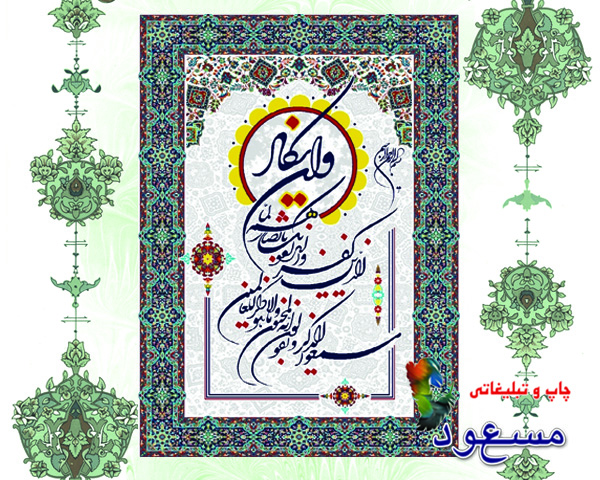 بسم الله الرحمن الرحیم
وان یکاد
الذین کفروا لیزلقونک بابصارهم لما
سمعوا الذکر و یقولون انه لمجنون و ما هو الا ذکر للعالمین
چاپ و تبلیغاتی
مسعود